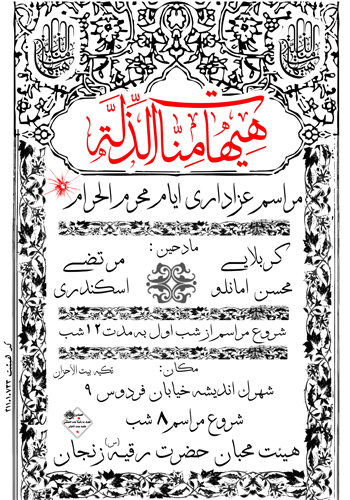 هیهات منا الذلة
مراسم عزاداری ایام محرم الحرام
مادحین:
کربلایی
محسن امانلو
مرتضی
اسکندری
شروع مراسم از شب اول به مدت ۱۲ شب
مکان: تکیه بیت الاحزان
شهرک اندیشه خیابان فردوس ۹
شروع مراسم ۸ شب
هیئت محبان حضرت رقیه (س) زنجان